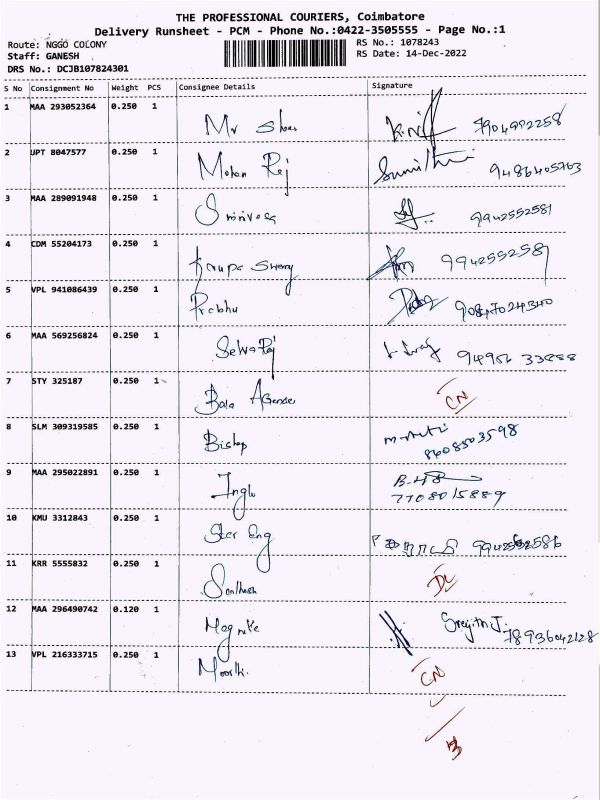 THE PROFESSIONAL COURIERS, Coimbatore
Delivery Runsheet - PCM - Phone No.:0422-3505555 - Page No.:1
Route: NGGO COLONY
Staff: GANESH
DRS No.: DCJB107824301
RS No.: 1078243
RS Date: 14-Dec-2022
S No Consignment No Weight PCS Consignee Details Signature
1 MAA 293052364 0.250 1 Mr
2 UPT 8047577 0.250 1 Mohan Raj 9486405763
3 MAA 289091948 0.250 1 Srinivasa 9942552581
4 CDM 55204173 0.250 1 994255258
5 VPL 941086439 0.250 1 Prabhu 9087024340
6 MAA 569256824 0.250 1 Selva Raj
7 STY 325187 0.250 1 Bala CN
8 SLM 309319585 0.250 1 Bishop 8608503598
9 MAA 295022891 0.250 1 7708015889
10 KMU 3312843 0.250 1 Star Eng
11 KRR 5555832 0.250 1 Santhosh DL
12 MAA 296490742 0.120 1 Sreyithi J. 78936042128
13 VPL 216333715 0.250 1 CN
3